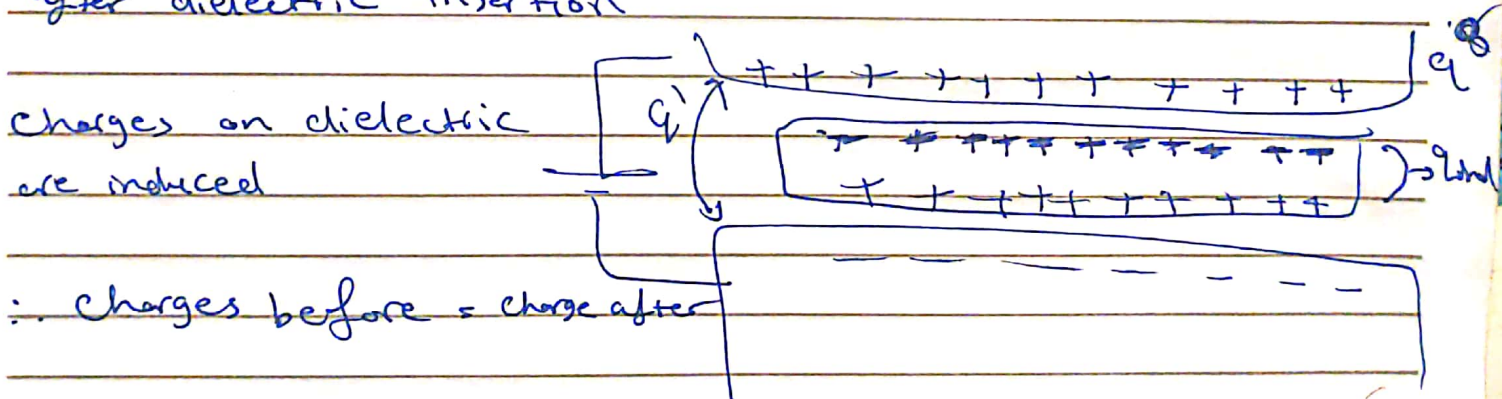 after dielectric insertion
q'
charges on dielectric
q'
are induced
qind
∴ charges before = charge after